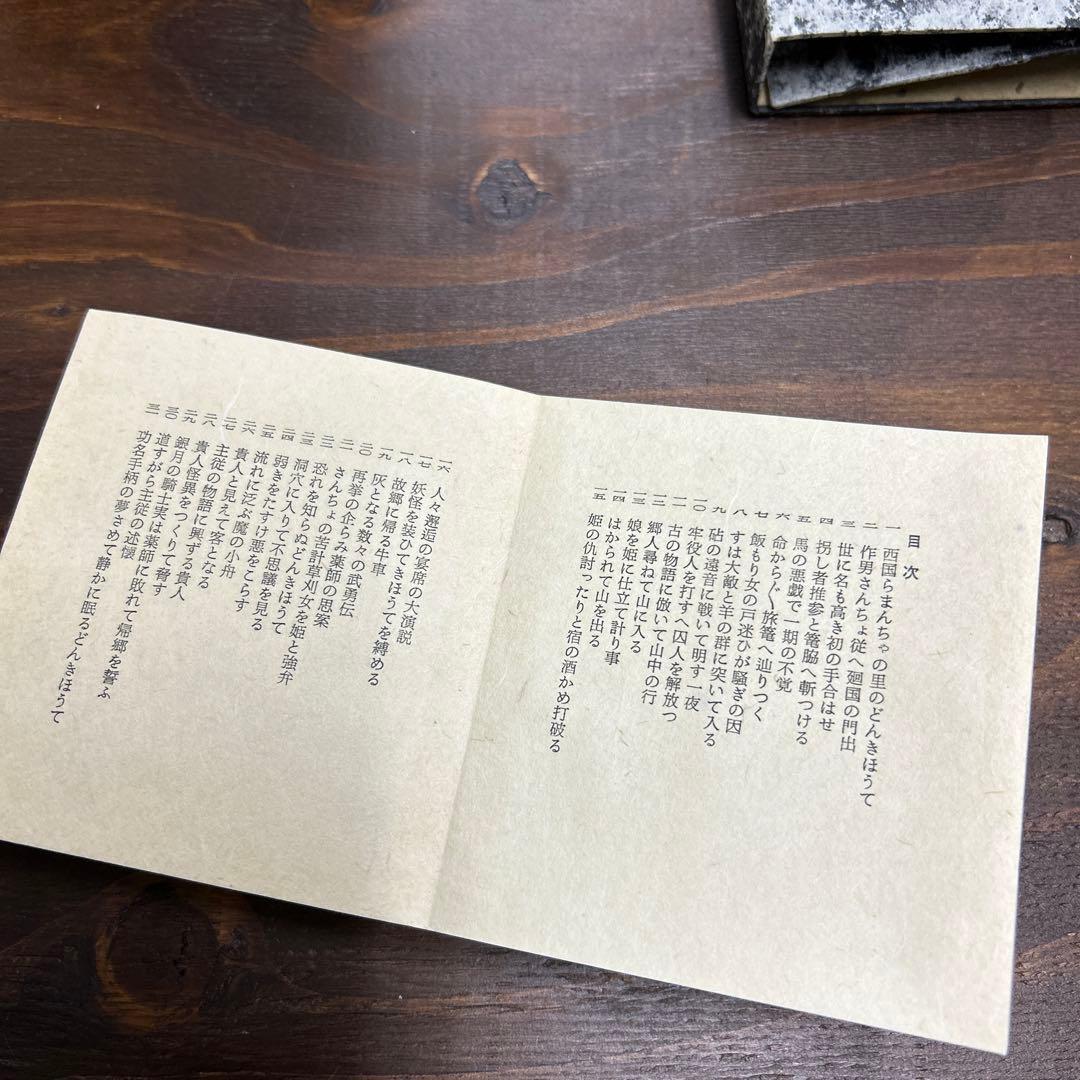 目次
一 西国らまんちゃの里のどんきほうて
二 作男さんちょ従へ廻国の門出
三 世に名も高き初の手合はせ
四 拐し者推参と篭脇へ斬つける
五 馬の悪戯で一期の不覚
六 命からぐ〵旅篭へ辿りつく
七 飯もり女の戸迷ひが騒ぎの因
八 すは大敵と羊の群に突いて入る
九 砧の遠音に戦いて明す一夜
一〇 牢役人を打すへ囚人を解放つ
一一 古の物語に倣いて山中の行
一二 郷人尋ねて山に入る
一三 娘を姫に仕立て計り事
一四 はかられて山を出る
一五 姫の仇討ったりと宿の酒かめ打破る
一六 人々邂逅の宴席の大演説
一七 妖怪を装ひてきほうてを縛める
一八 故郷に帰る牛車
一九 灰となる数々の武勇伝
二〇 再挙の企らみ薬師の思案
二一 さんちょの苦計草刈女を姫と強弁
二二 恐れを知らぬどんきほうて
二三 洞穴に入りて不思議を見る
二四 弱きをたすけ悪をこらす
二五 流れに泛ぶ魔の小舟
二六 貴人と見えて客となる
二七 主従の物語に興ずる貴人
二八 貴人怪異をつくりて脅す
二九 銀月の騎士実は薬師に敗れて帰郷を誓ふ
三〇 道すがら主従の述懐
三一 功名手柄の夢さめて静かに眠るどんきほうて